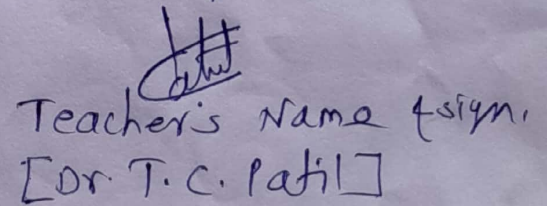 Patil
Teacher's Name & sign.
[Dr. T. C. Patil]